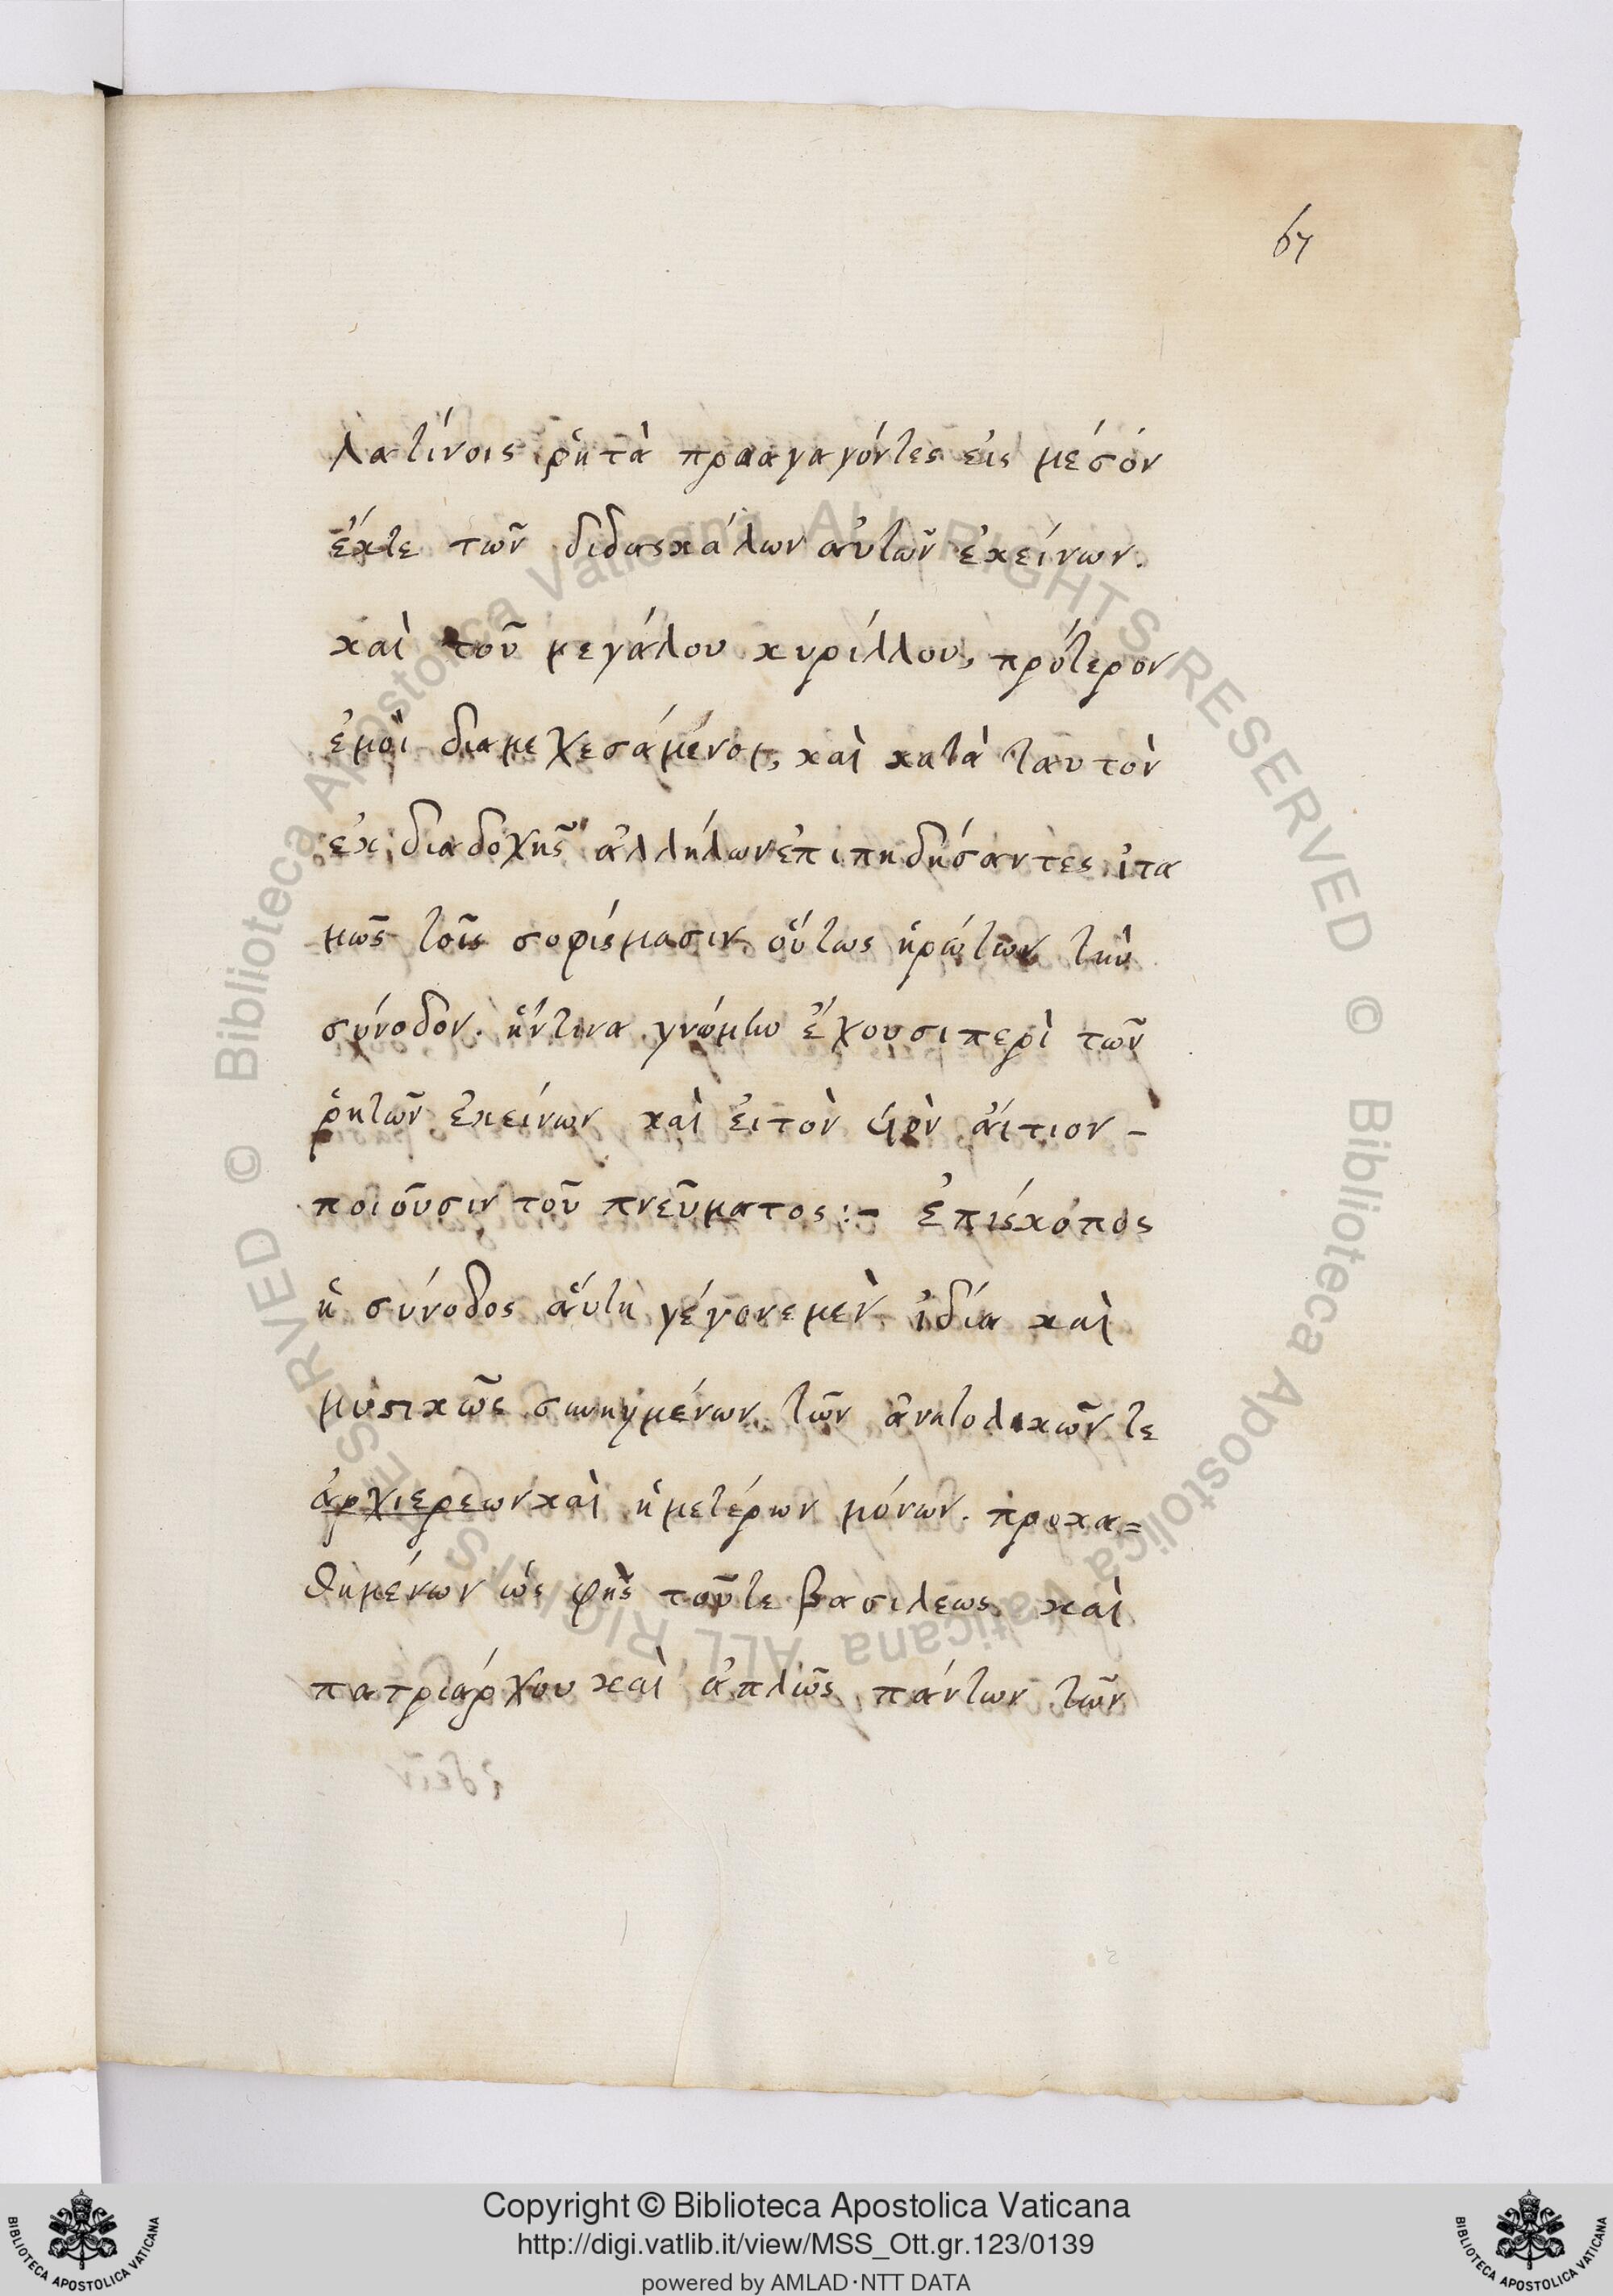 67
λατίνοις ῥητὰ πρααγαγόντες εἰς μέσόν
ἔκτε τῶν διδασκάλων ἀυτῶν ἐκείνων.
καὶ τοῦ μεγάλου κυρίλλου, πρότερον
ἐμοὶ διαμεχεσάμένοι, καὶ κατὰ ταυτὸν
ἐκ διαδοχῆς ἀλλήλων ἐπιπηδήσαντες ἰτα
μῶς τοῖς σοφίσμασιν οὕτως ἠρώτων τὴν
σύνοδον. ἥντινα γνώμην ἔχουσι περὶ τῶν
ῥητῶν ἐκείνων καὶ ἐι τὸν ὑιὸν ἀίτιον -
ποιοῦσιν τοῦ πνεῦματος :- ἐπίσκόπος
ἡ σύνοδος ἅυτη γέγονε μὲν ἰδία καὶ
μυστικῶς συνηγμένων τῶν ἀνατολικῶν τε
ἀρχιερεων καὶ ἡμετέρων μόνων. προκα=
θημένων ὡς φῂς τοῦτε βασιλέως καὶ
πατριάρχου καὶ ἁπλῶς πάντων τῶν
Copyright © Biblioteca Apostolica Vaticana
http://digi.vatlib.it/view/MSS_Ott.gr.123/0139
powered by AMLAD·NTT DATA